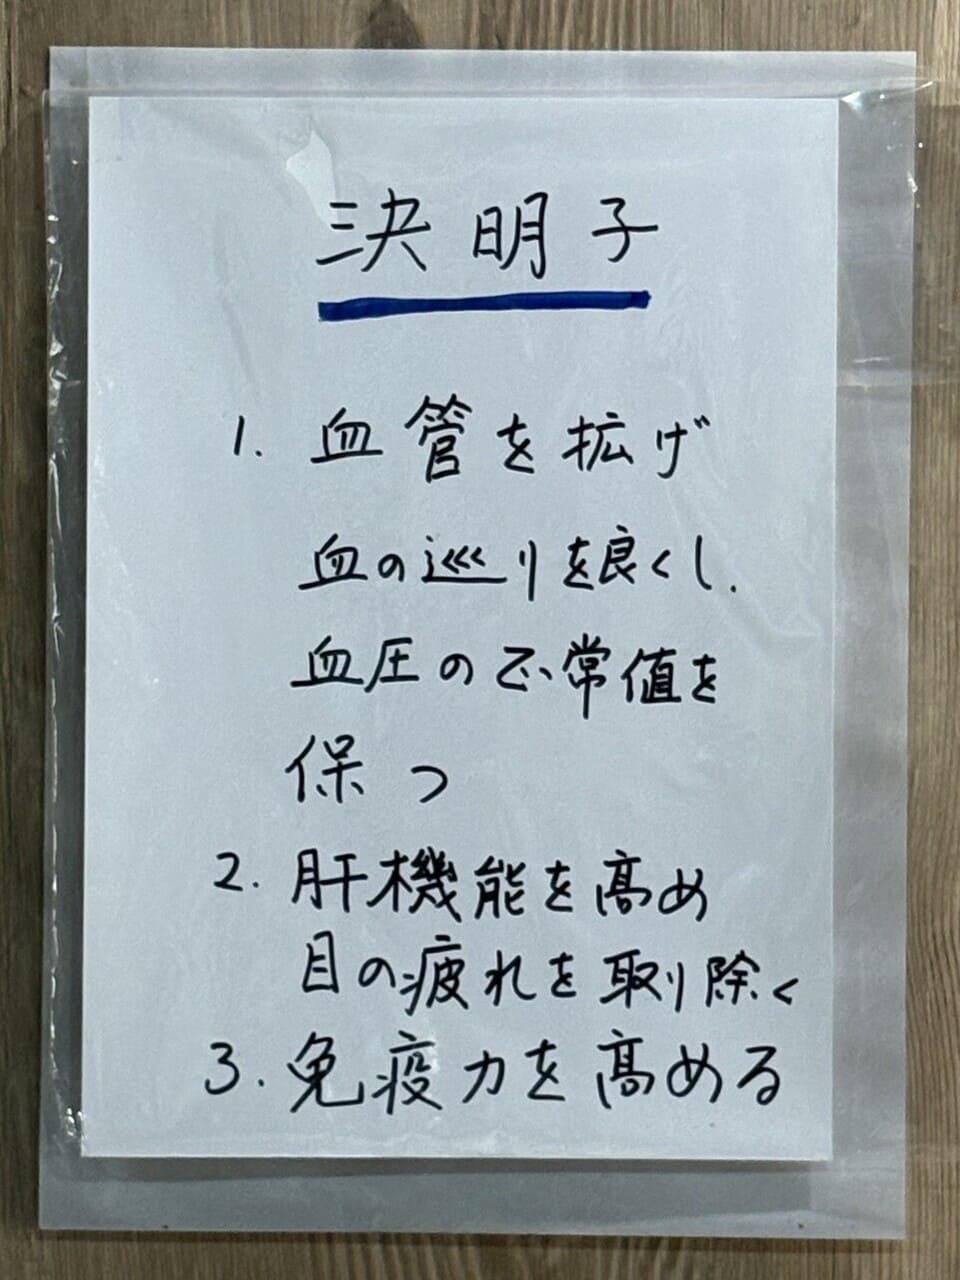 決明子
1. 血管を拡げ
血の巡りを良くし.
血圧の正常値を
保つ
2. 肝機能を高め
目の疲れを取り除く
3. 免疫力を高める